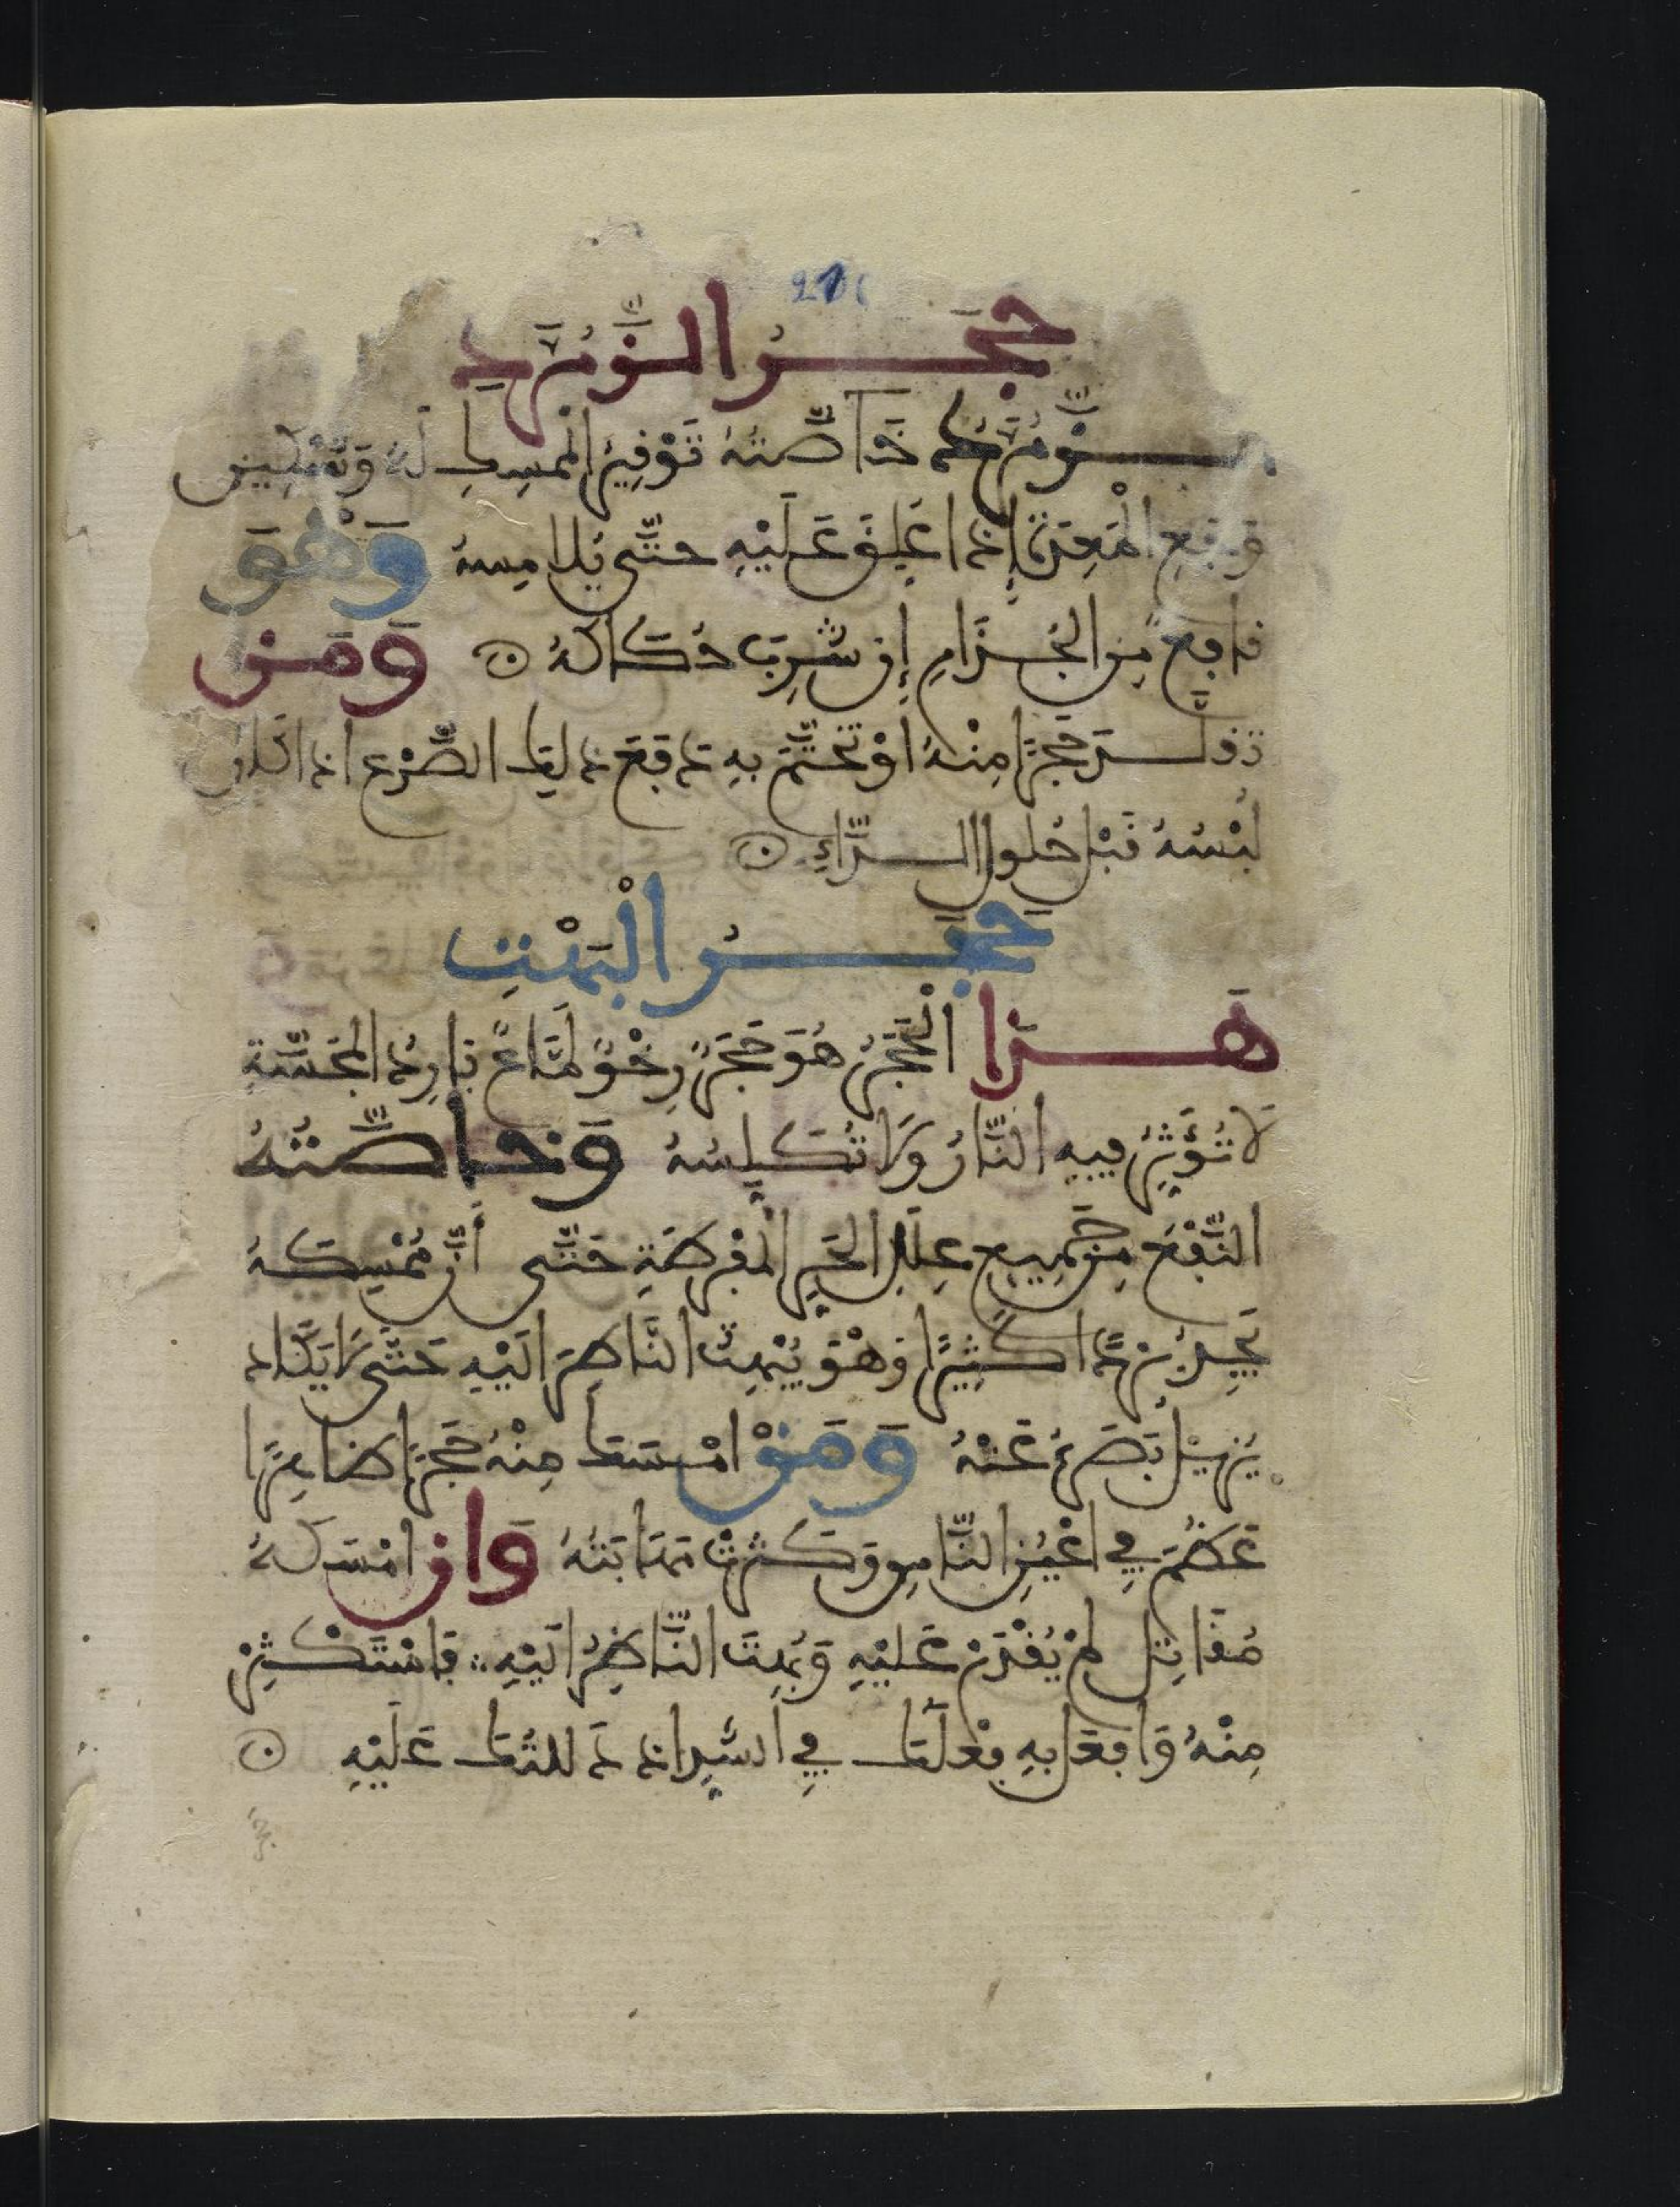 حَجَرُ الزُّمُرَّدِ
الزُّمُرُّد خَاصَّتُهُ تَوْفِيرُ الممسِكِ لَهُ وَتَسْكِين
وَجَعِ الْمَعِدَةِ إِذَا عُلِّقَ عَلَيْهِ حتَّى يُلامِسهُ وَهْوَ
نافعٌ مِن الجُذَامِ إِن شُرِبَ حُكَاكَهُ وَمَن
تقلَّدَ حَجَرًا مِنْهُ اوْ تَخَتَّمَ بِهِ دَفَعَ ذَلِكَ الصَّرْعَ اذا كان
لُبْسُهُ قَبْلَ حُلولِ الدَّاءِ
حَجَرُ الْبَهْتِ
هَذَا الْحَجَرُ هُوَ حَجَرٌ رِخْوٌ لَمَّاعٌ بَارِدُ المَجَسَّةِ
لَا تُؤَثِّرُ فِيهِ النَّارُ وَلَا تُكَلِّسُهُ وَخاصَّتهُ
النَّفْعُ مِن جَمِيعِ عِلَلِ الحَرِّ الْمُفْرِطَةِ حَتَّى أَنَّ مُمْسِكَهُ
يَجِدُ بَرْدًا كَثِيرًا وَهْوَ يُبْهِتُ النَّاظِرَ الَيْهِ حَتَّى لَا يَكَاد
يُزِيلُ بَصَرَهُ عَنْهُ وَمَنْ امْسَكَ مِنْهُ حَجَرًا ظَاهِرًا
عَظُمَ فِي اعْيُنِ النَّاسِ وَكَثُرَتْ مَهَابَتُهُ وَان امْسَكَهُ
مُقَاتِل لَمْ يُقْدَرْ عَلَيْهِ وَبُهِتَ النَّاظِرُ الَيْهِ فَاسْتَكْثِرْ
مِنْهُ وَافْعَل بِهِ فِعْلَكَ فِي السِّرِّ اذ دَللتُكَ عَلَيْهِ